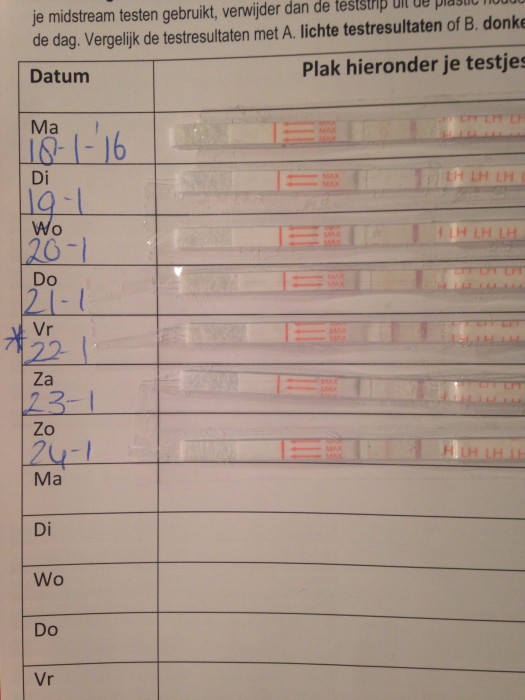 je midstream testen gebruikt, verwijder dan de teststrip uit de plastic
de dag. Vergelijk de testresultaten met A. lichte testresultaten of B. donke
Datum
Plak hieronder je testjes
Ma
18-1-'16
MAX
MAX
MAX
LH LH LH
LH LH LH
Di
19-1
MAX
MAX
LH LH LH
Wo
20-1
MAX
MAX
MAX
LH LH LH
Do
21-1
MAX
MAX
LH LH LH
* Vr
22-1
MAX
MAX
MAX
LH LH LH
Za
23-1
MAX
MAX
MAX
LH LH LH
Zo
24-1
MAX
MAX
MAX
H LH LH LH
Ma
Di
Wo
Do
Vr